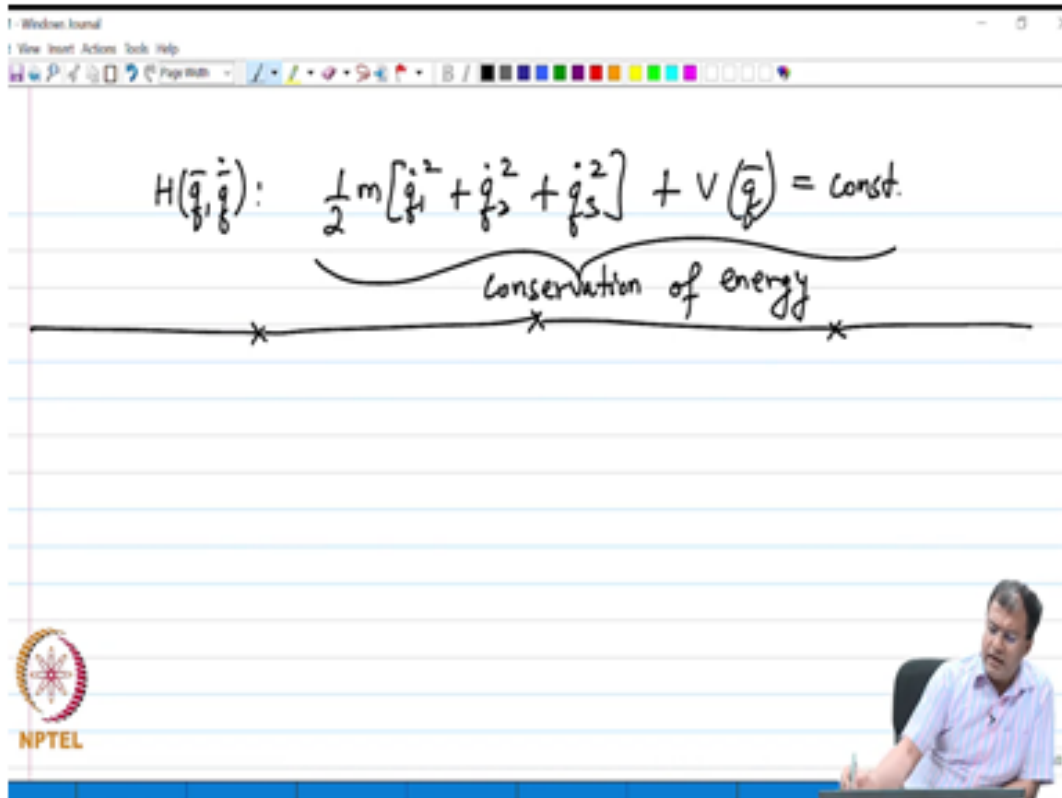 - Windows Journal
View Insert Actions Tools Help
Page Width
B I
H(q̄, q̄̇): ½ m[q̇₁² + q̇₂² + q̇₃²] + V(q̄) = const.
conservation of energy
NPTEL